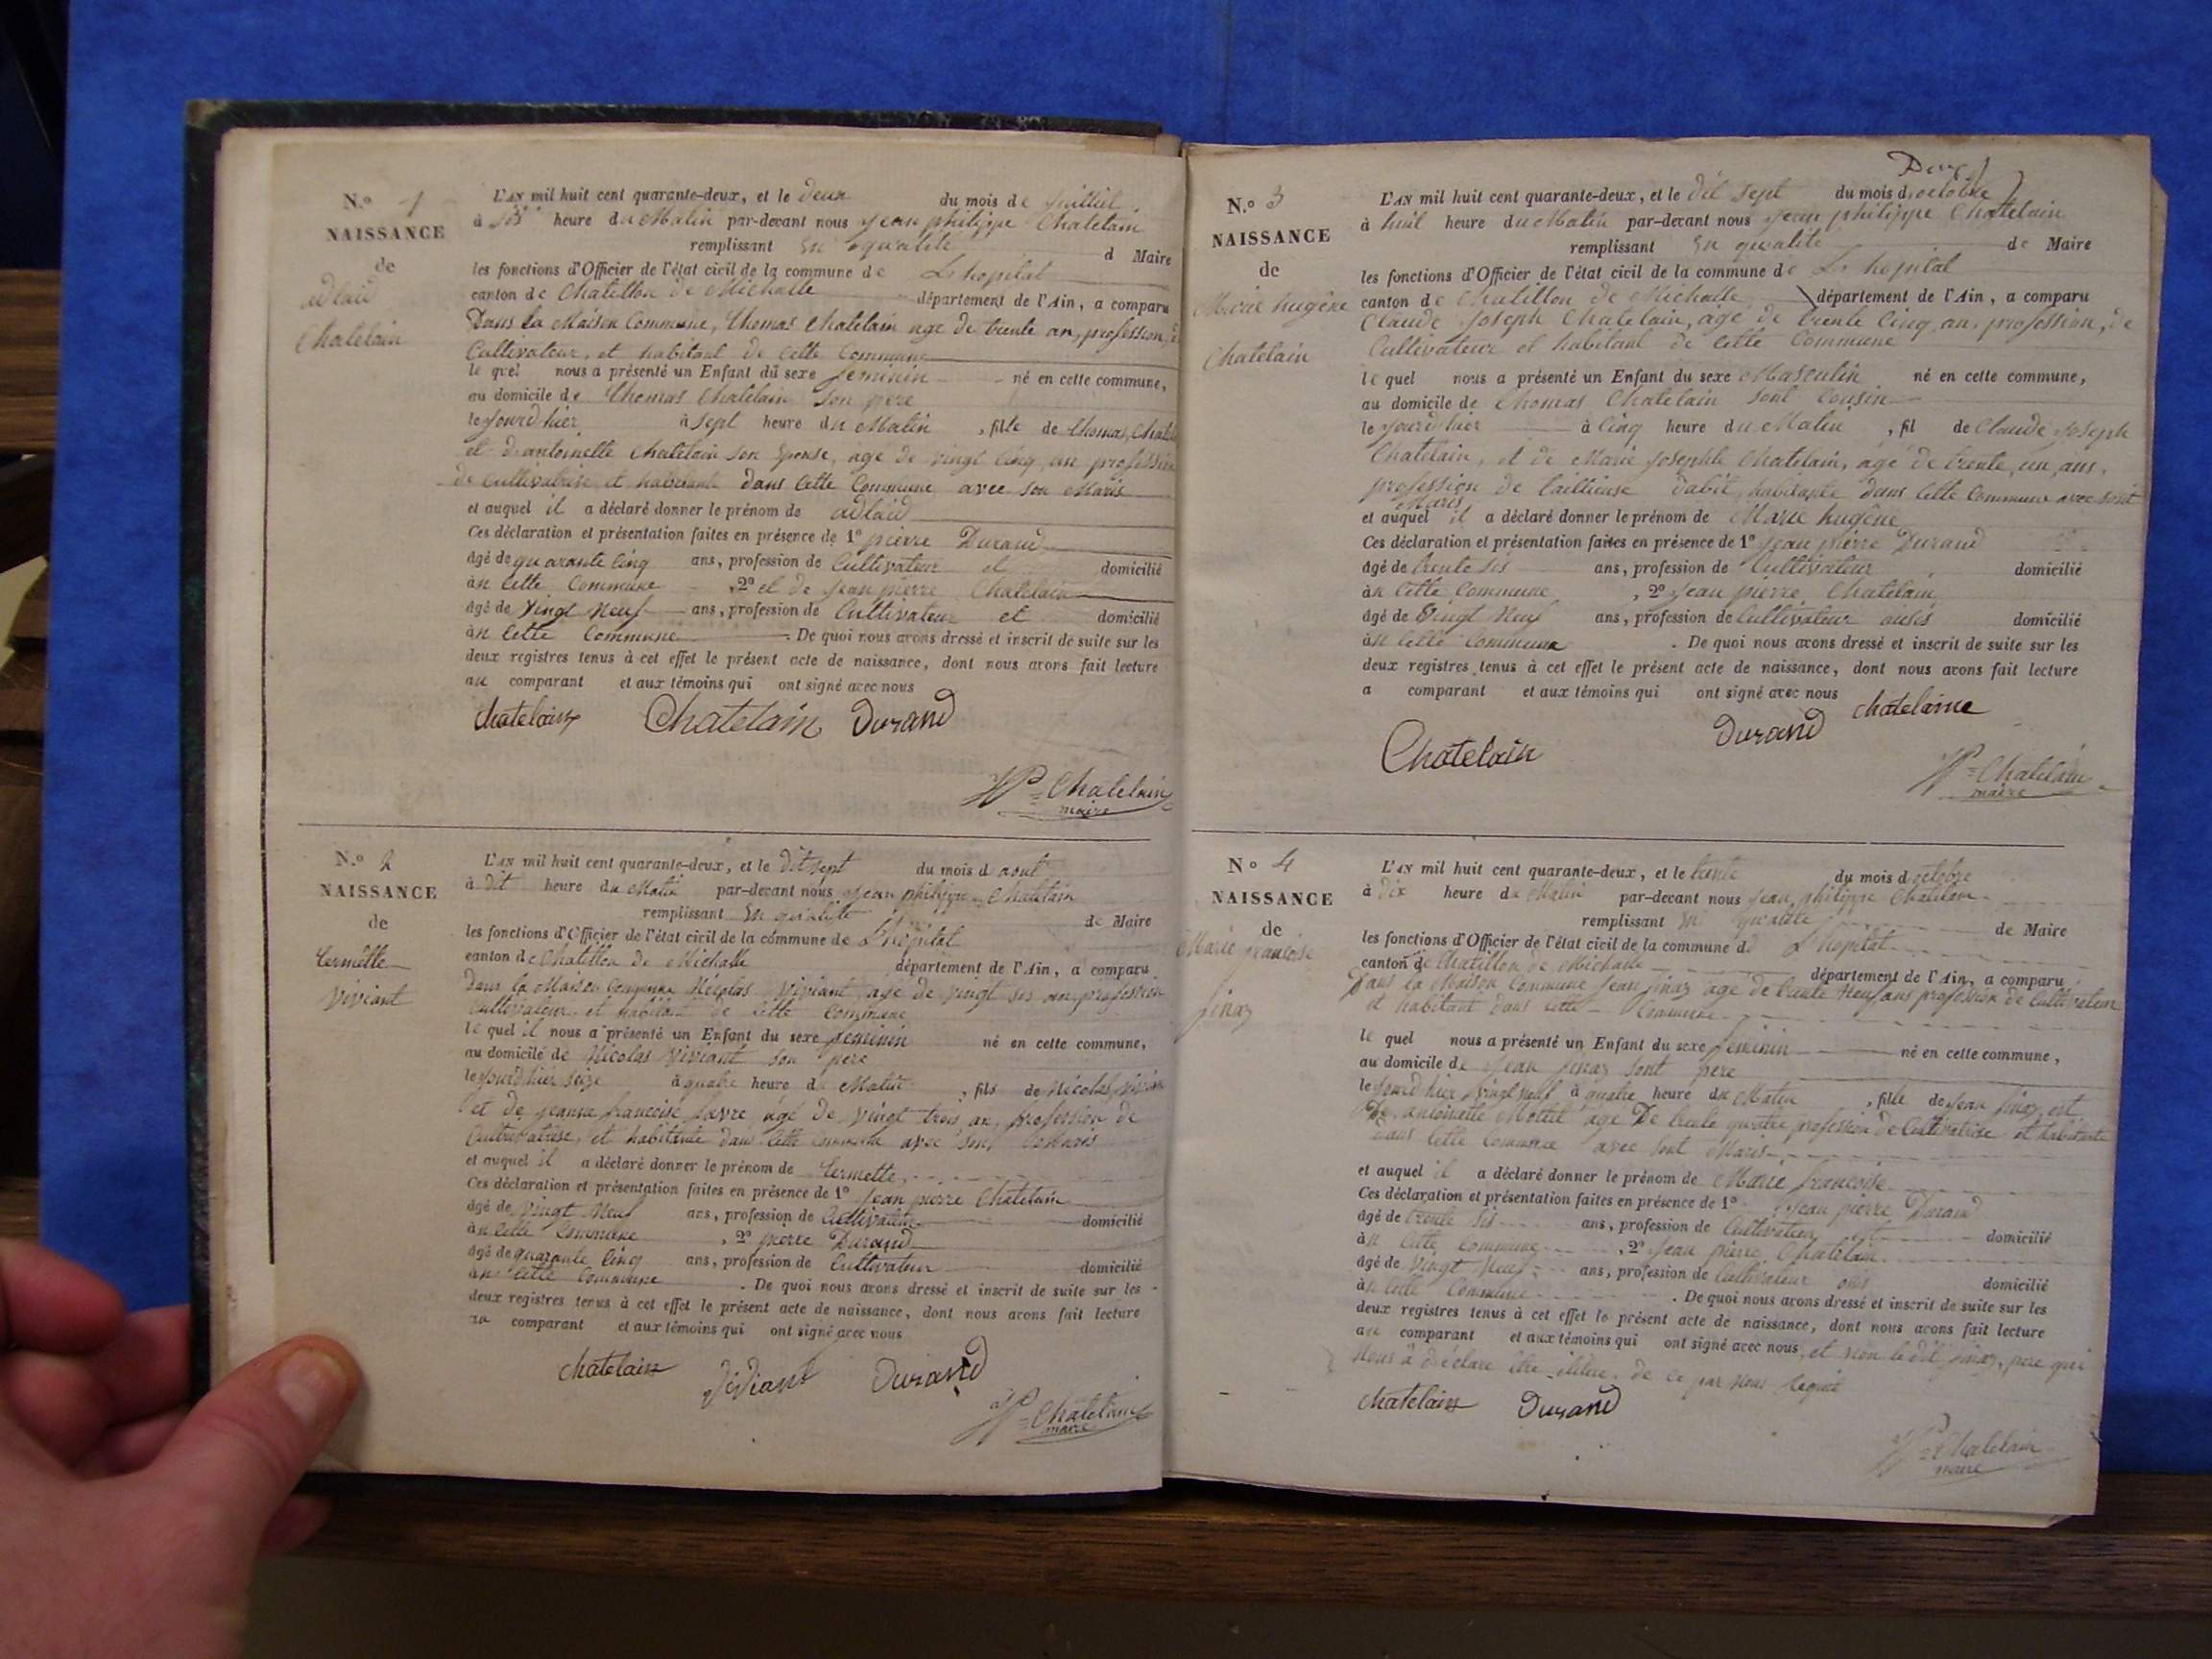 N.º 1
NAISSANCE
de
adlaid
Chatelain
L'AN mil huit cent quarante-deux, et le deux du mois de Juilliet
à heure du Matin par-devant nous Jean philippe Chatelain
remplissant En qualité d Maire
les fonctions d'Officier de l'état civil de la commune de L hopital
canton de Chatillon de Michalle département de l'Ain, a comparu
Dans la Maison Commune, thomas Chatelain age de trente an, profession, d
Cultivateur, et habitant de Cette Commune
le quel nous a présenté un Enfant du sexe feminin né en cette commune,
au domicile de thomas Chatelain Son pere
le Jourdhier à sept heure du Matin , fille de thomas, Chatel
et d antoinette Chatelain son Epouse, age de vingt Cinq, an profession
de Cultivatrise et habitant dans Cette Commune avec son Maris
et auquel il a déclaré donner le prénom de adlaid
Ces déclaration et présentation faites en présence de 1º pierre Durand
âgé de quarante Cinq ans, profession de Cultivateur et domicilié
àn Cette Commune 2º et de Jean pierre Chatelain
âgé de Vingt Neuf ans, profession de Cultivateur et domicilié
àn Cette Commune . De quoi nous avons dressé et inscrit de suite sur les
deux registres tenus à cet effet le présent acte de naissance, dont nous avons fait lecture
au comparant et aux témoins qui ont signé avec nous
Chatelain Chatelain Durand
JP = Chatelain
maire
N.º 2
NAISSANCE
de
termette
Viviant
L'AN mil huit cent quarante-deux, et le dit sept du mois d aout
à dit heure du Matin par-devant nous Jean philippe Chatelain
remplissant En qualité de Maire
les fonctions d'Officier de l'état civil de la commune de L'hopital
canton de Chatillon de Michalle département de l'Ain, a comparu
dans la Maison Commune Nicolas Viviant age de vingt sis an, profession
Cultivateur, et habitant de Cette Commune
le quel il nous a présenté un Enfant du sexe feminin né en cette commune,
au domicile de Nicolas Viviant Son pere
le Jourdhier Seize à quatre heure du Matin , fils de Nicolas Viviant
et de Jeanne francoise favre agé de vingt trois an, profession de
Cultivatrise, et habitante dans Cette Commune avec son
et auquel il a déclaré donner le prénom de termette
Ces déclaration et présentation faites en présence de 1º Jean pierre Chatelain
âgé de vingt Neuf ans, profession de Cultivateur domicilié
àn Cette Commune , 2º pierre Durand
âgé de quarante Cinq ans, profession de Cultivateur domicilié
àn Cette Commune . De quoi nous avons dressé et inscrit de suite sur les
deux registres tenus à cet effet le présent acte de naissance, dont nous avons fait lecture
au comparant et aux témoins qui ont signé avec nous
Chatelain Viviant Durand
JP = Chatelain
maire
Deux
N.º 3
NAISSANCE
de
Marie hugêne
Chatelain
L'AN mil huit cent quarante-deux, et le Dit sept du mois d'octobre
à huit heure du Matin par-devant nous Jean philippe Chatelain
remplissant En qualité de Maire
les fonctions d'Officier de l'état civil de la commune de L hopital
canton de Chatillon de Michalle département de l'Ain, a comparu
Claude Joseph Chatelain, age de trente Cinq, an, profession, de
Cultivateur et habitant de Cette Commune
le quel nous a présenté un Enfant du sexe Masculin né en cette commune,
au domicile de thomas Chatelain sont Cousin
le Jourdhier à Cinq heure du Matin , fil de Claude Joseph
Chatelain, et de Marie Josephte Chatelain, agé de trente, un, ans,
profession de tailliеuse dabit, habitante dans Cette Commune avec sont
Maris
et auquel il a déclaré donner le prénom de Marie hugêne
Ces déclaration et présentation faites en présence de 1º Jean pierre Durand
âgé de trente Sis ans, profession de Cultivateur domicilié
àn Cette Commune , 2º Jean pierre, Chatelain
âgé de Vingt Neuf ans, profession de Cultivateur domicilié
àn Cette Commune . De quoi nous avons dressé et inscrit de suite sur les
deux registres tenus à cet effet le présent acte de naissance, dont nous avons fait lecture
a comparant et aux témoins qui ont signé avec nous
Chatelain Durand chatelaine
JP = Chatelain
maire
Nº 4
NAISSANCE
de
Marie francoise
Jinaz
L'AN mil huit cent quarante-deux, et le trente du mois d octobre
à dix heure du Matin par-devant nous Jean, philippe Chatelain
remplissant En qualité de Maire
les fonctions d'Officier de l'état civil de la commune d L'hopital
canton de Chatillon de Michalle département de l'Ain, a comparu
Dans la Maison Commune Jean Jinaz age de trente Neuf ans profession de Cultivateur
et habitant dans Cette Commune
le quel nous a présenté un Enfant du sexe feminin né en cette commune,
au domicile de Jean Jinaz sont pere
le Jourdhier vingt neuf à quatre heure du Matin , fille de Jean Jinaz, est
De, antoinette Mottet age De trente quatre, profession de Cultivatrise et habitante
dans Cette Commune avec sont Maris
et auquel il a déclaré donner le prénom de Marie francoise
Ces déclaration et présentation faites en présence de 1º Jean pierre Durand
âgé de trente Sis ans, profession de Cultivateur domicilié
àn Cette Commune , 2º Jean pierre, Chatelain
âgé de Vingt Neuf ans, profession de Cultivateur domicilié
àn Cette Commune . De quoi nous avons dressé et inscrit de suite sur les
deux registres tenus à cet effet le présent acte de naissance, dont nous avons fait lecture
au comparant et aux témoins qui ont signé avec nous, et non le dit Jinaz, pere qui
Nous à déclare être iliterè de ce par Nous Requit
Chatelain Durand
JP = Chatelain
maire